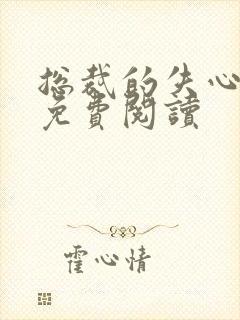 总裁的失心
免費閱讀
霍心情